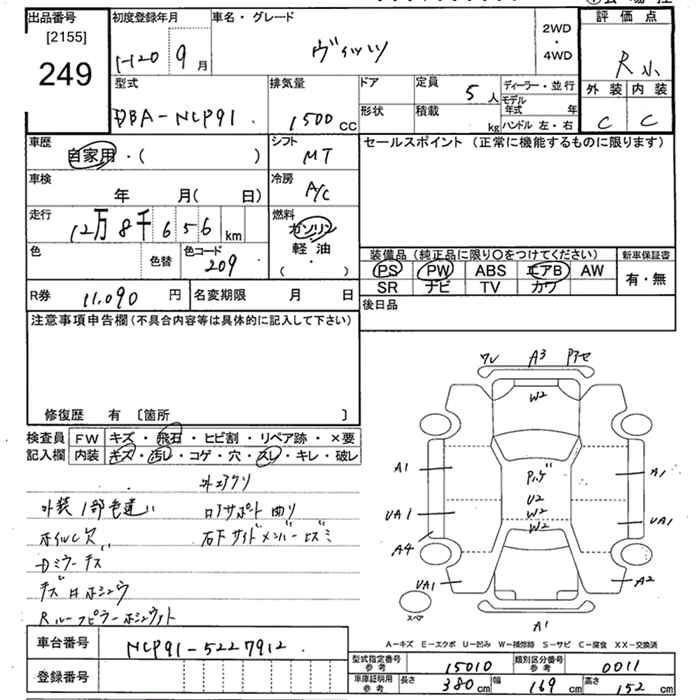 出品番号
[2155]
249
初度登録年月
H20 9月
車名・グレード
ヴィッツ
2WD
・
4WD
評価点
R
外装 内装
C C
型式
DBA-NCP91
排気量
1500 CC
ドア
形状
定員
5人
積載
kg
ディーラー・並行
モデル年式 年
ハンドル 左・右
車歴
自家用・( )
シフト
MT
セールスポイント (正常に機能するものに限ります)
車検
年 月( 日)
冷房
A/C
走行
12万8千656 km
燃料
ガソリン
軽油
・
( )
色
色替
色コード
209
装備品 (純正品に限り○をつけてください)
PS PW ABS エアB AW
SR ナビ TV カワ
新車保証書
有・無
R券 11,090 円
名変期限 月 日
後日品
注意事項申告欄 (不具合内容等は具体的に記入して下さい)
修復歴 有 [箇所 ]
検査員
記入欄
FW キズ・飛石・ヒビ割・リペア跡・×要
内装 キズ・汚レ・コゲ・穴・スレ・キレ・破レ
外装1部色違い
ホイルC欠
Dミラーキズ
ロアサポート曲り
右下サイドメンバーヒズミ
ワレ A3
W2
A1 A1
U2
W2
UA1 UA1
W2
A4
UA1 A2
スペア
A1
A=キズ E=エクボ U=凹み W=補修跡 S=サビ C=腐食 XX=交換済
車台番号 NCP91-5227912
登録番号
型式指定番号 参考 15010
類別区分番号 参考 0011
車庫証明用 参考 長さ 380cm 幅 169cm 高さ 152cm